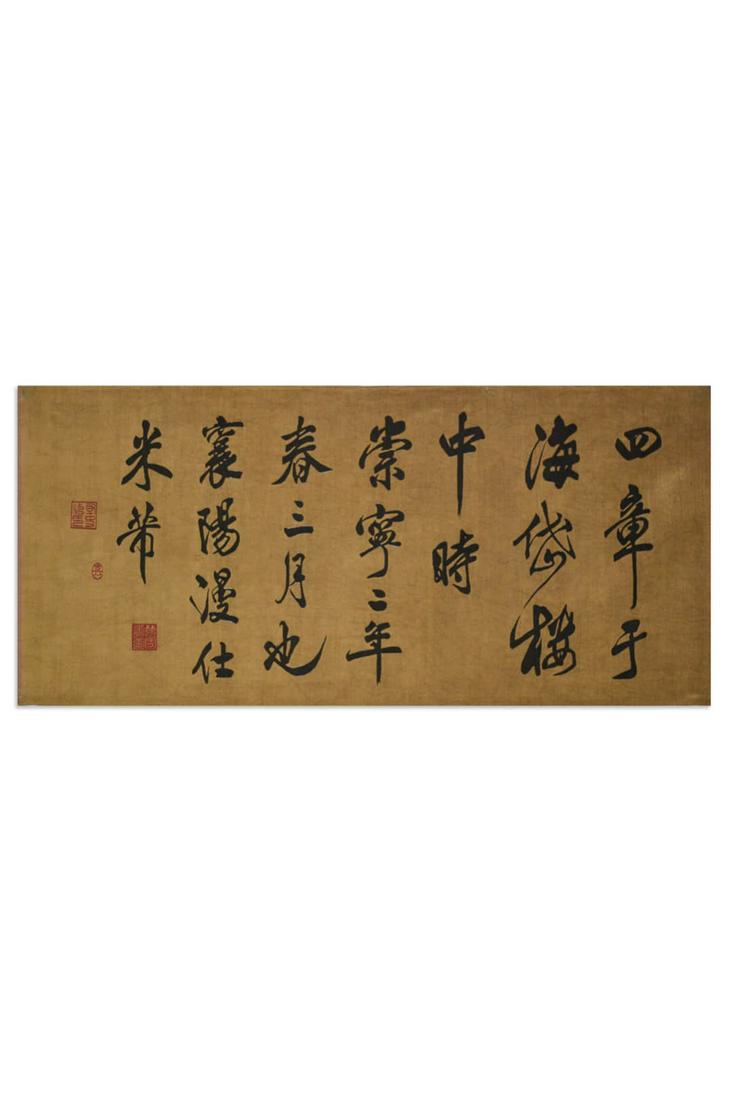 四章于
海岱楼
中時
崇寧二年
春三月也
襄陽漫仕
米芾